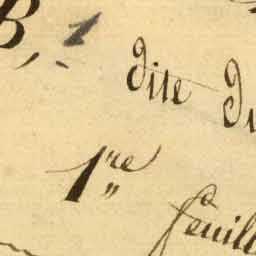 B, 1
dite du
1re feuill